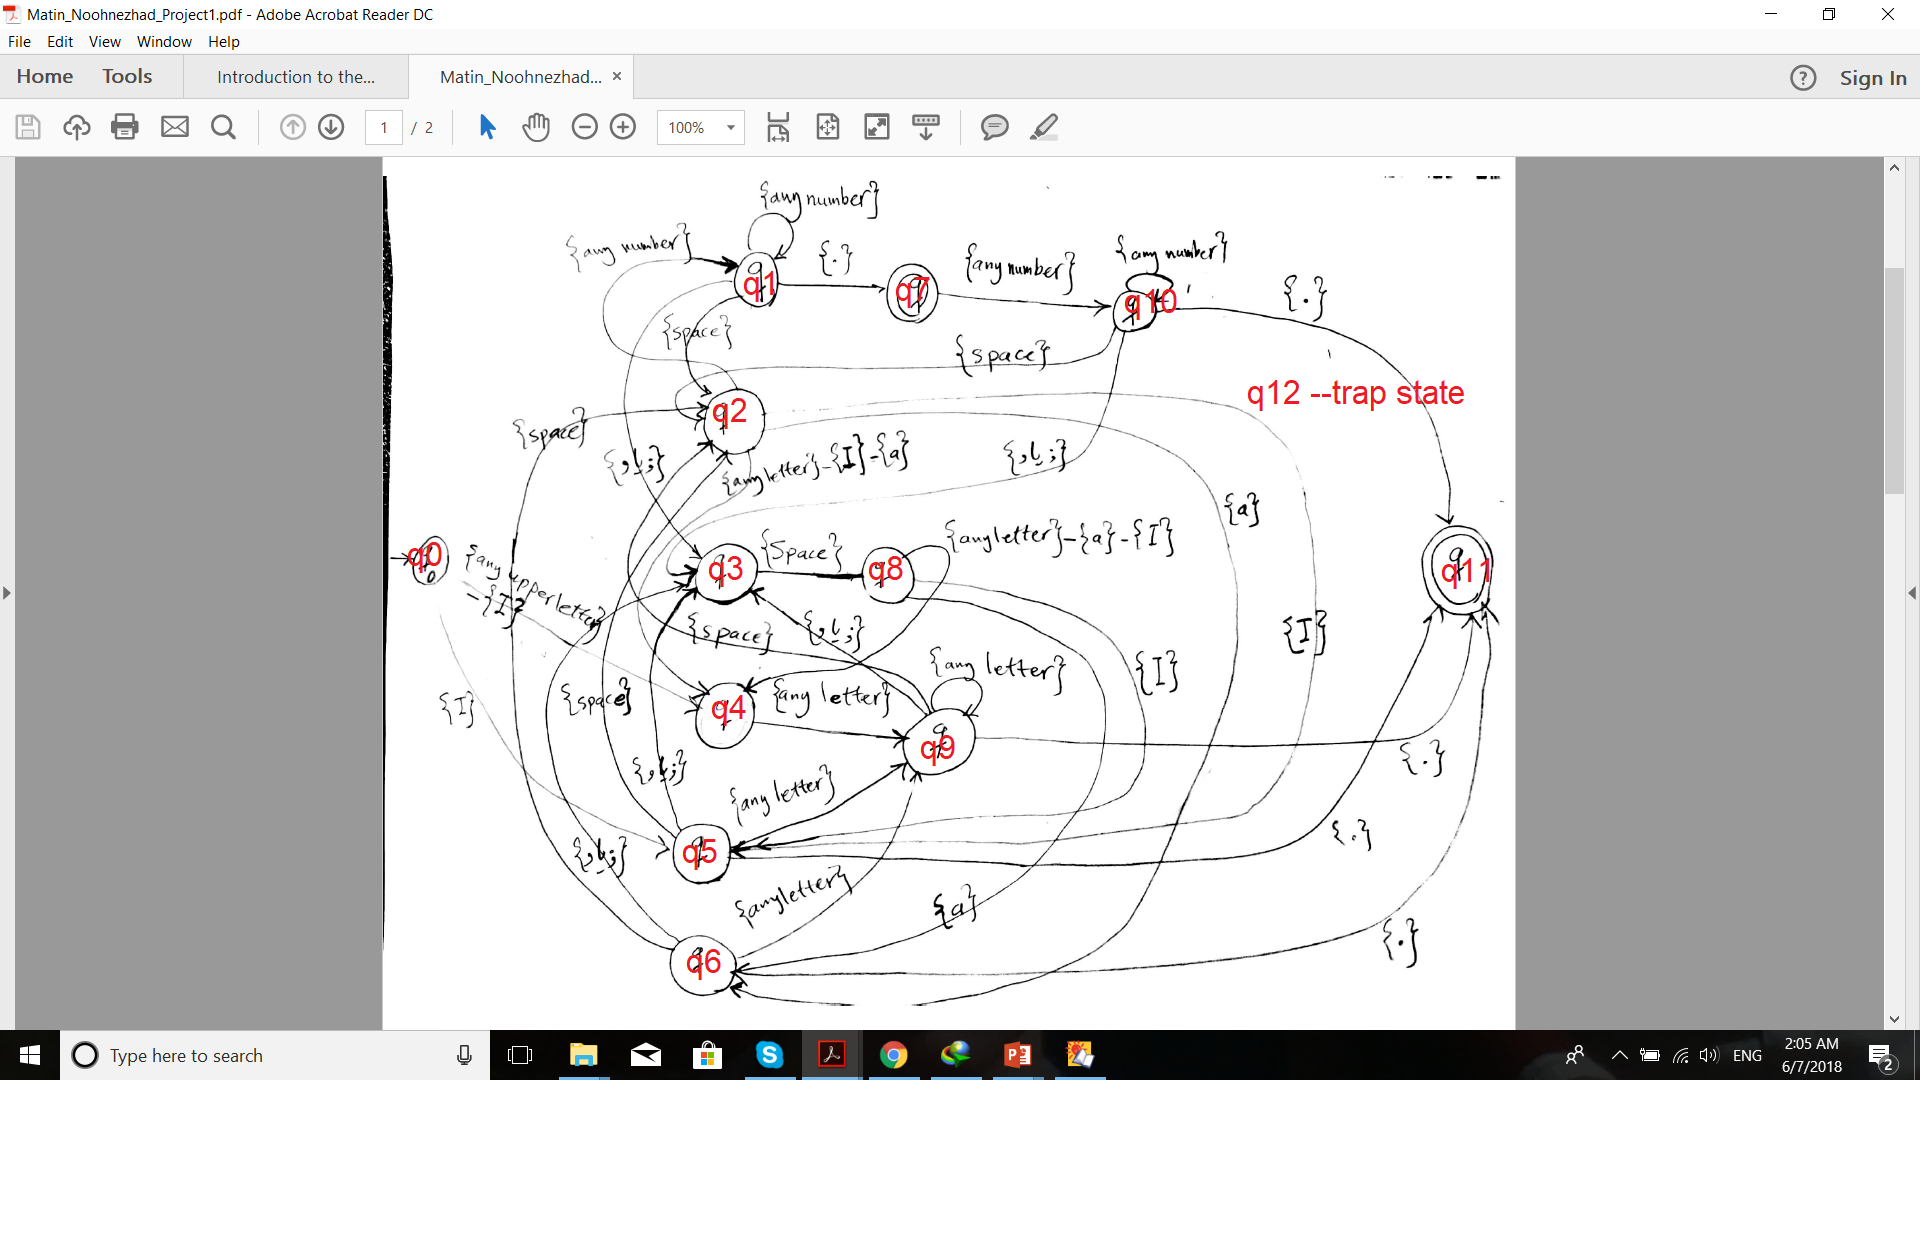 Matin_Noohnezhad_Project1.pdf - Adobe Acrobat Reader DC
File Edit View Window Help
Home Tools Introduction to the... Matin_Noohnezhad... × ? Sign In
1 / 2 100%
{any number}
{any number} {.} {any number} {any number}
q1 q7 q10 {.}
{space} {space}
q12 --trap state
q2
{space}
{any letter}-{I}-{a}
{a}
q0 {any upper letter}
-{I}
q3 {space} q8 {any letter}-{a}-{I}
q11
{space} {I}
{any letter} {I}
{I} {space} q4 {any letter}
q9 {.}
{any letter}
q5 {.}
{any letter} {a}
q6 {.}
Type here to search
ENG
2:05 AM
6/7/2018
2